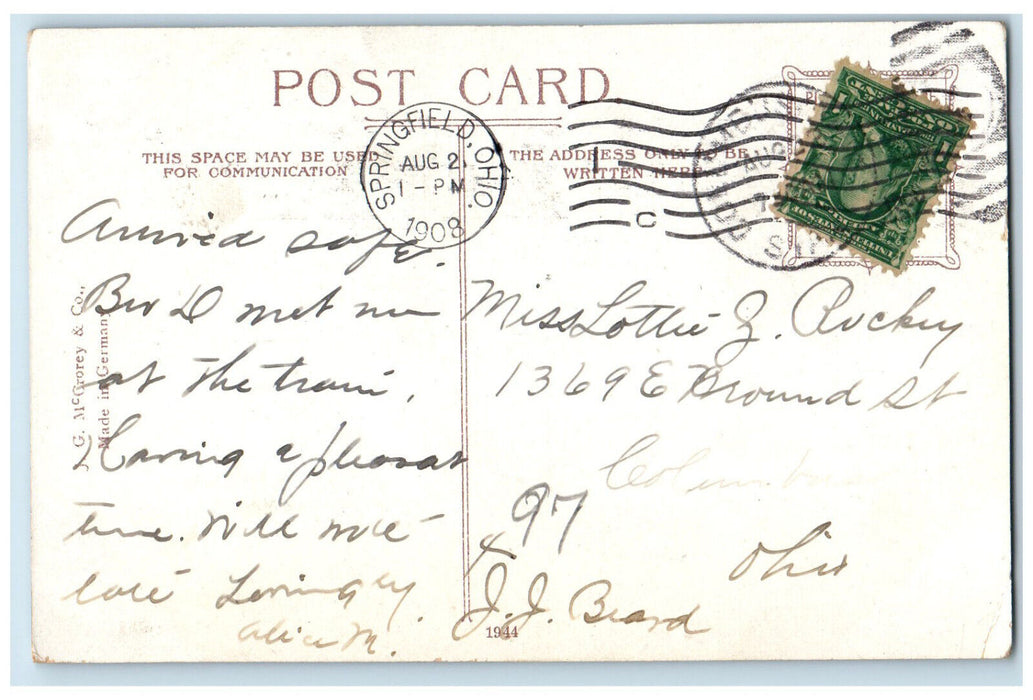 POST CARD
THIS SPACE MAY BE USED
FOR COMMUNICATION
THE ADDRESS ONLY TO BE
WRITTEN HERE
SPRINGFIELD, OHIO.
AUG 2
1 - PM
1908
C
Arrived safe.
Bro D met me
at the train.
Having a pleasant
time. Will write
late Lovingly
Alice M.
G. McCrorey & Co.,
Made in German
Miss Lottie Z. Ruckey
1369 E
St
Columbus
Ohio
97
J. J. Beard
1944